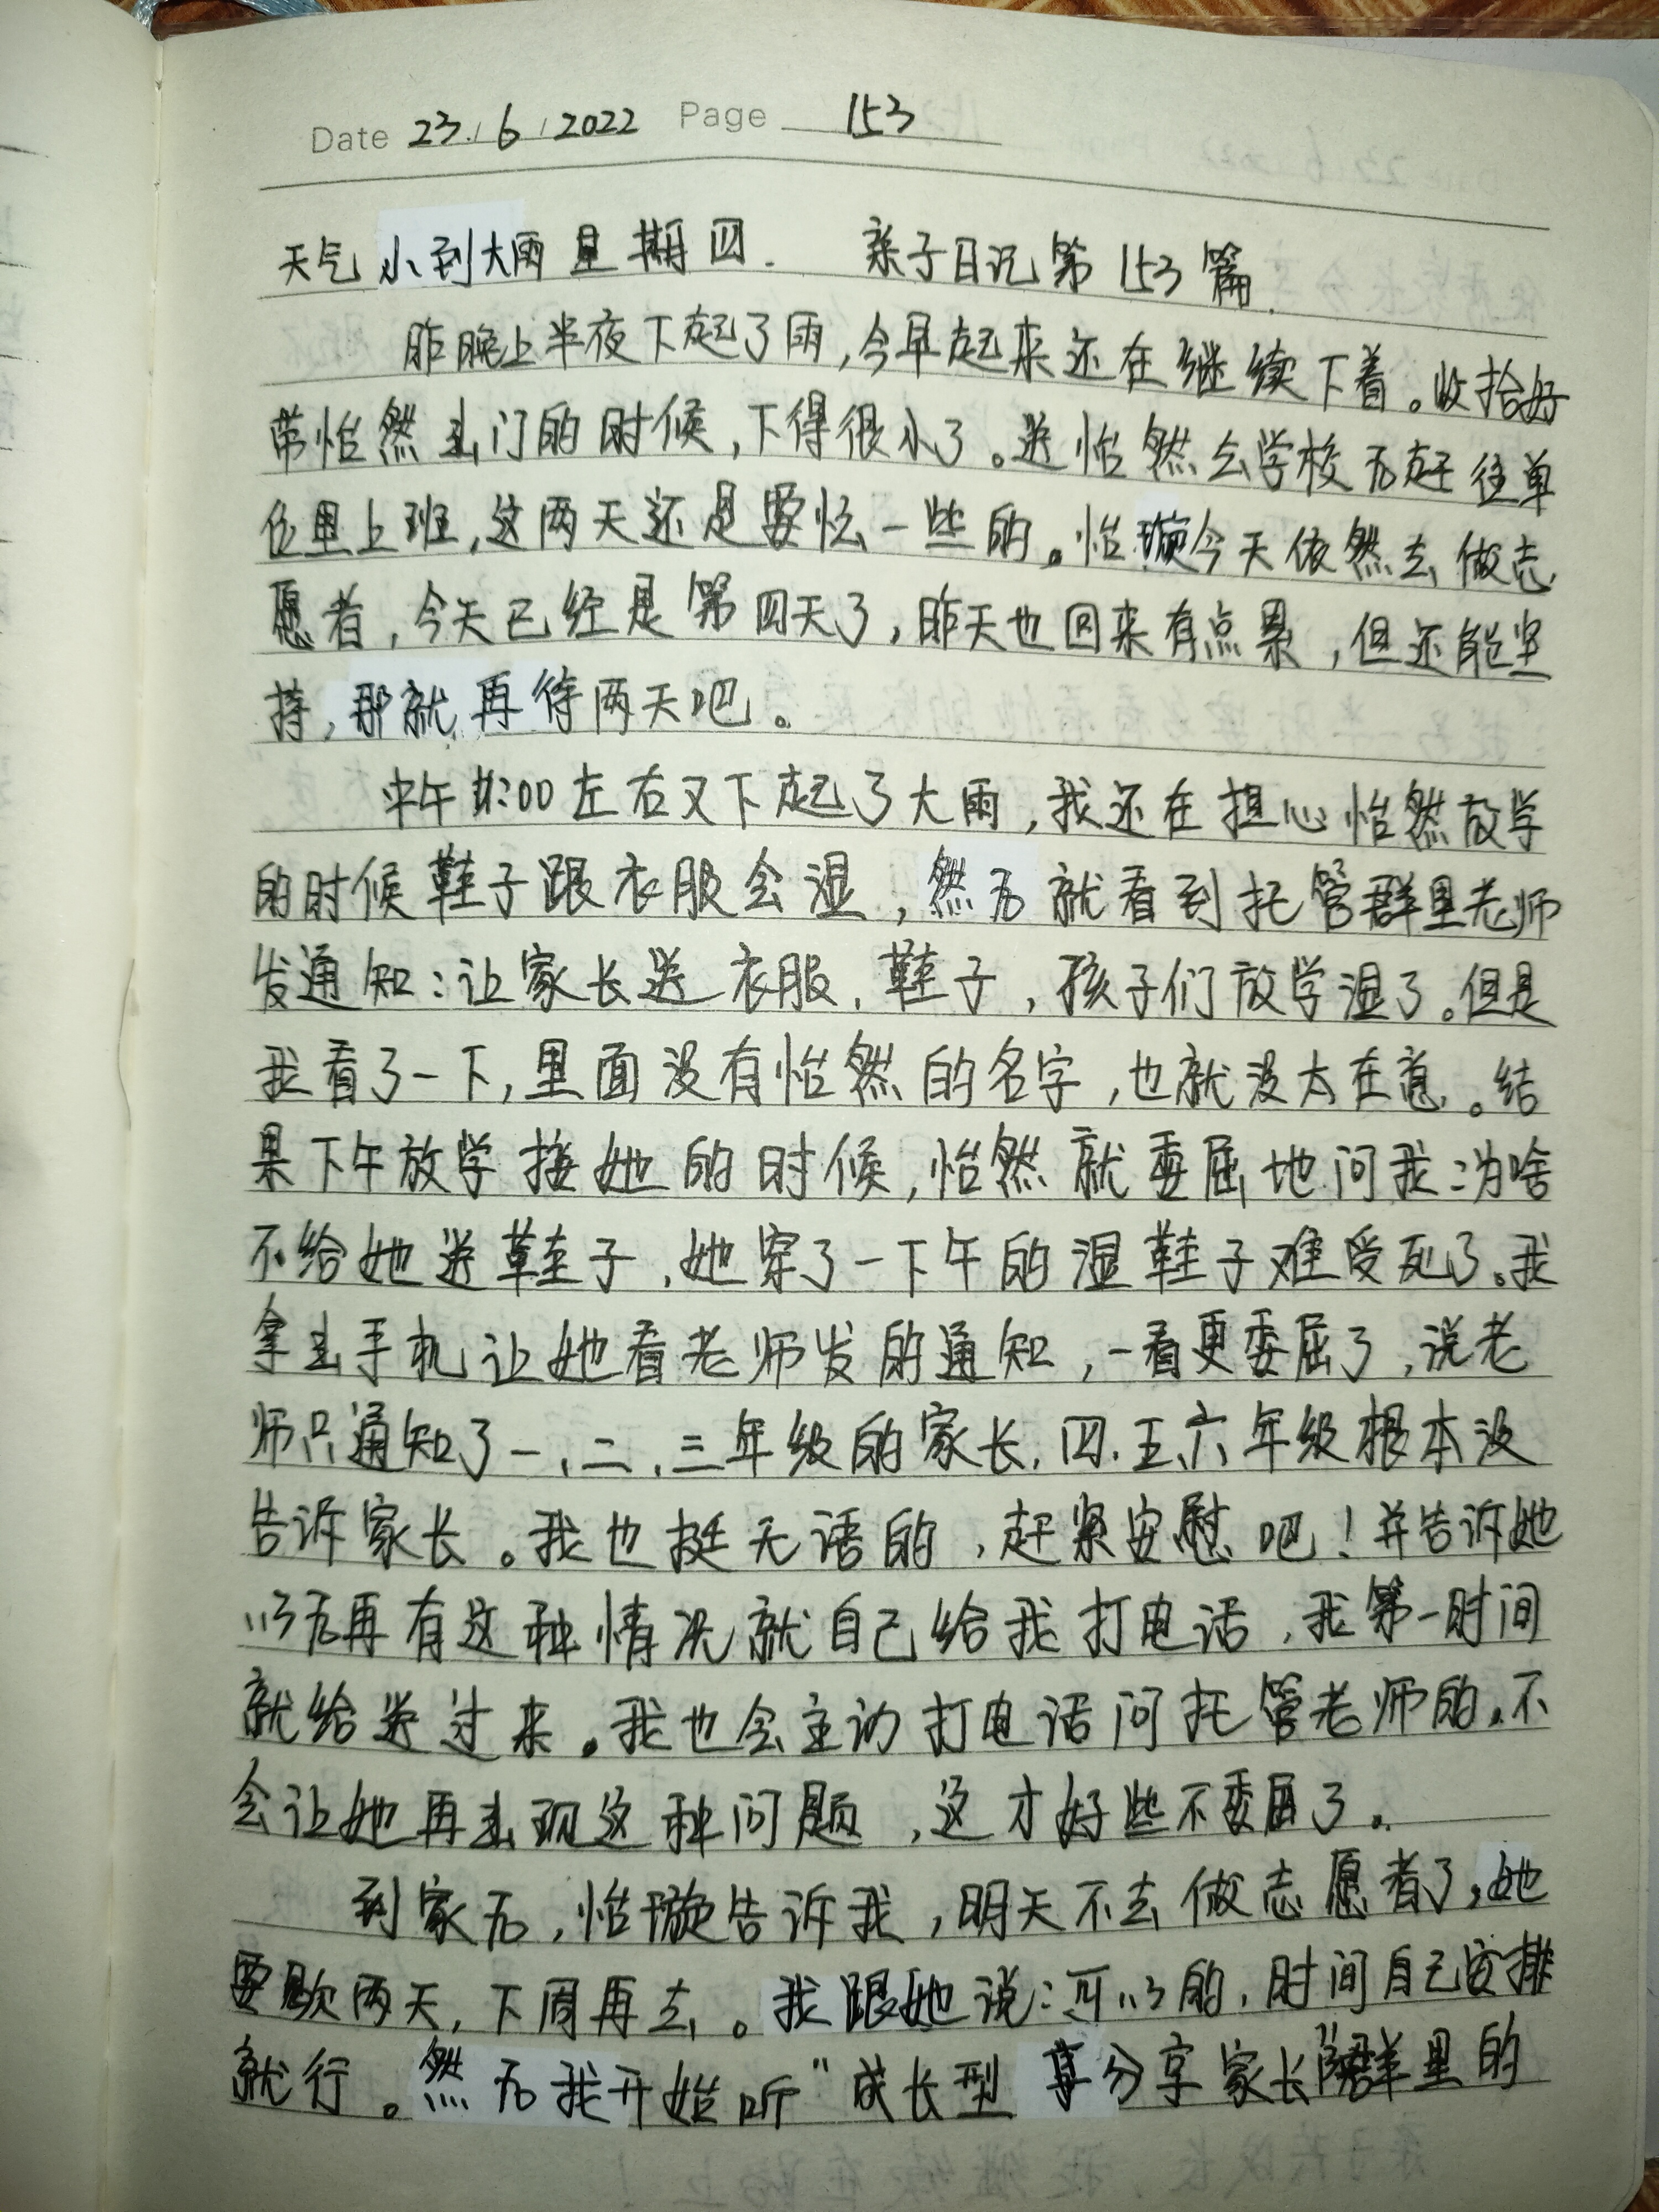 Date 23/6/2022 Page 153
天气 小到大雨 星期四. 亲子日记第153篇.
昨晚上半夜下起了雨,今早起来还在继续下着。收拾好
带怡然出门的时候,下得很小了。送怡然去学校后赶往单
位里上班,这两天还是要忙一些的。怡璇今天依然去做志
愿者,今天已经是第四天了,昨天也回来有点累,但还能坚
持,那就再待两天吧。
中午 :00左右又下起了大雨,我还在担心怡然放学
的时候鞋子跟衣服会湿,然后就看到托管群里老师
发通知:让家长送衣服、鞋子,孩子们放学湿了。但是
我看了一下,里面没有怡然的名字,也就没太在意。结
果下午放学接她的时候,怡然就委屈地问我:为啥
不给她送鞋子,她穿了一下午的湿鞋子难受死了。我
拿出手机让她看老师发的通知,一看更委屈了,说老
师只通知了一、二、三年级的家长,四、五、六年级根本没
告诉家长。我也挺无语的,赶紧安慰吧!并告诉她
以后再有这种情况就自己给我打电话,我第一时间
就给送过来。我也会主动打电话问托管老师的。不
会让她再出现这种问题,这才好些不委屈了。
到家后,怡璇告诉我,明天不去做志愿者了,她
要歇两天,下周再去。我跟她说:可以的,时间自己安排
就行。然后我开始听"成长型 分享家长"群里的